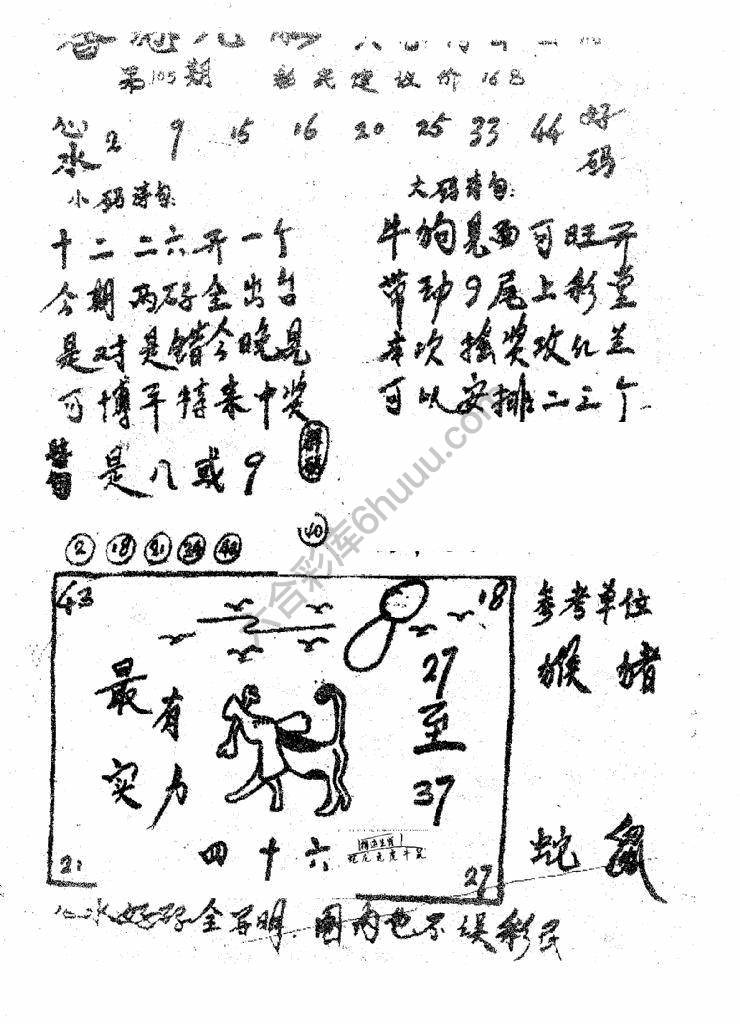 第105期 彩民建议价168
心水 2 9 15 16 20 25 33 44 好码
小码诗句:
十二二六开一个
今期两码全出台
是对是错今晚见
可博平特来中奖
是八或9
大码诗句:
牛狗见面可旺开
带动9尾上彩堂
本次摇奖攻红兰
可以安排二三个
2 18 21
40
43 18
最有实力
27至37
四十六
21 27
参考单位
猴 猪
蛇 鼠
心水好码全写明 圈内也不误彩民
六合彩库6huuu.com